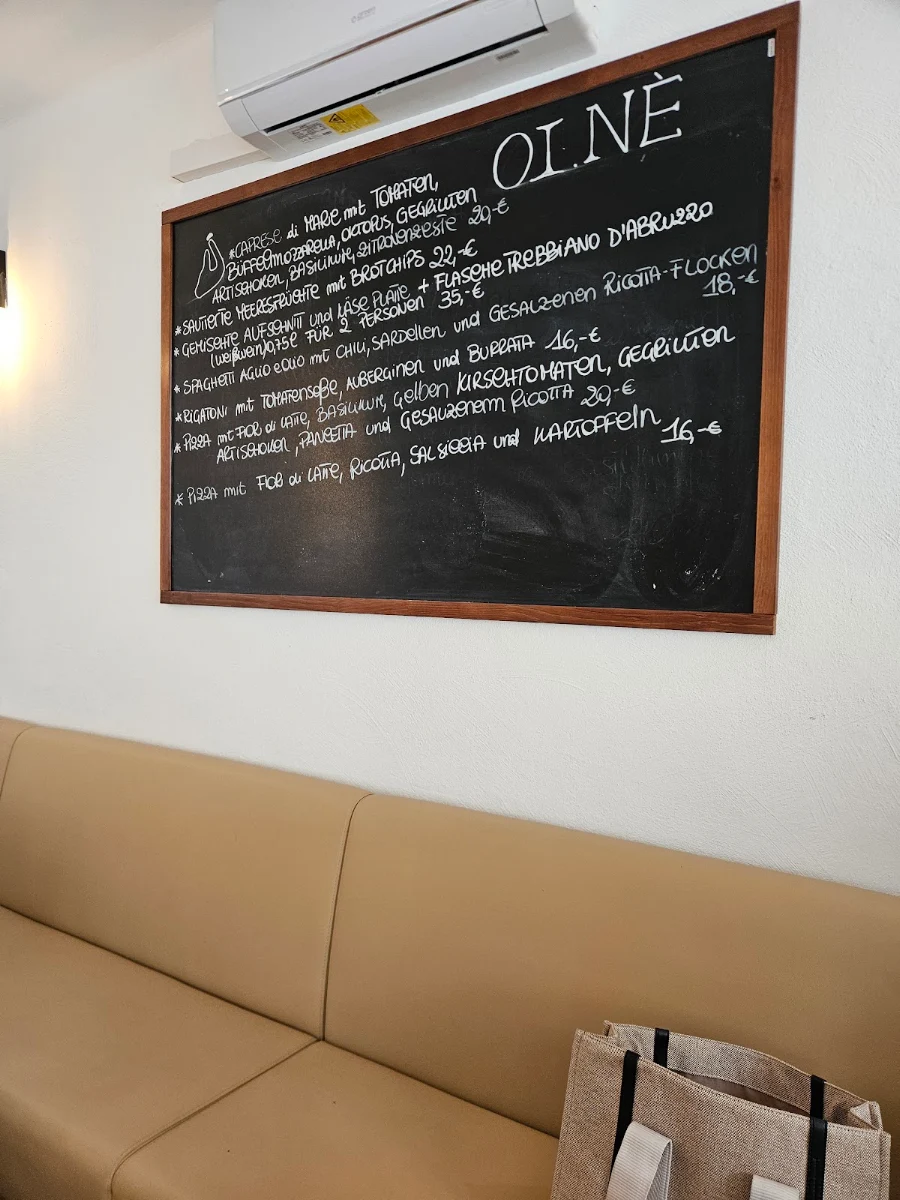 OI.NÈ
*CAPRESE di MARE mit TOMATEN,
BÜFFELMOZZARELLA, OKTOPUS, GEGRILLTEN
ARTISCHOKEN, BASILIKUM, ZITRONENZESTE 20,-€
*SAUTIERTE MEERESFRÜCHTE mit BROTCHIPS 22,-€
*GEMISCHTE AUFSCHNITT und KÄSE PLATTE + FLASCHE TREBBIANO D'ABRUZZO
(weißwein) 0,75l FÜR 2 PERSONEN 35,-€
*SPAGHETTI AGLIO e OLIO mit CHILI, SARDELLEN und GESALZENEN RICOTTA-FLOCKEN
18,-€
*RIGATONI mit TOMATENSOßE, AUBERGINEN und BURRATA 16,-€
*PIZZA mit FIOR di LATTE, BASILIKUM, gelben KIRSCHTOMATEN, GEGRILLTEN
ARTISCHOKEN, PANCETTA und GESALZENEM RICOTTA 20,-€
*PIZZA mit FIOR di LATTE, RICOTTA, SALSICCIA und KARTOFFELN 16,-€